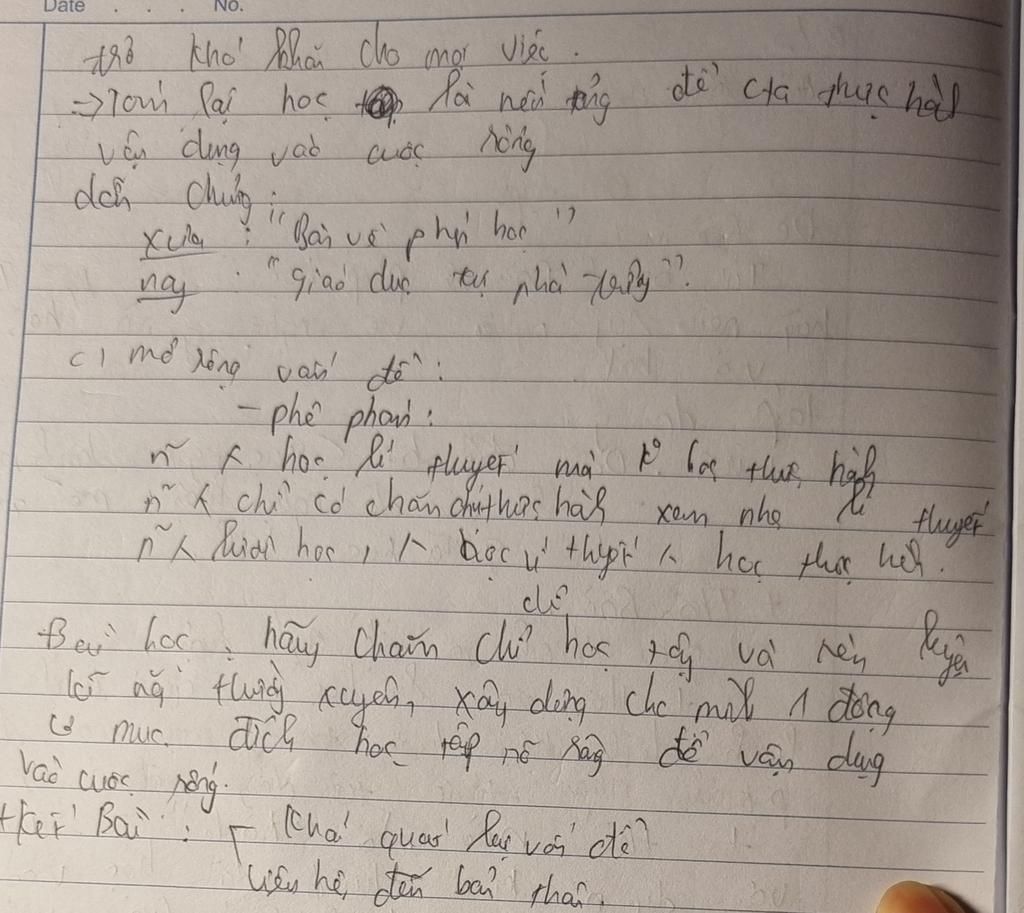 Date . . . No.
trở khó khăn cho mọi việc.
=> Tóm lại học là nền tảng để cta thực hành
vận dụng vào cuộc sống
dẫn chứng:
xưa: "Bàn về phép học"
nay: "giáo dục từ nhà trường".
c) mở rộng vấn đề:
- phê phán:
n~ học lí thuyết mà k° học thực hành
n~ chỉ có chăm chú thực hành xem nhẹ lí thuyết
n~ lười học, lí thuyết học thực hành.
chỉ
Bài học: hãy chăm chỉ học tập và rèn luyện
kĩ năng thường xuyên, xây dựng cho mình 1 động
cơ mục đích học tập rõ ràng để vận dụng
vào cuộc sống.
+ Kết Bài: - Khái quát lại vấn đề
liên hệ đến bản thân.